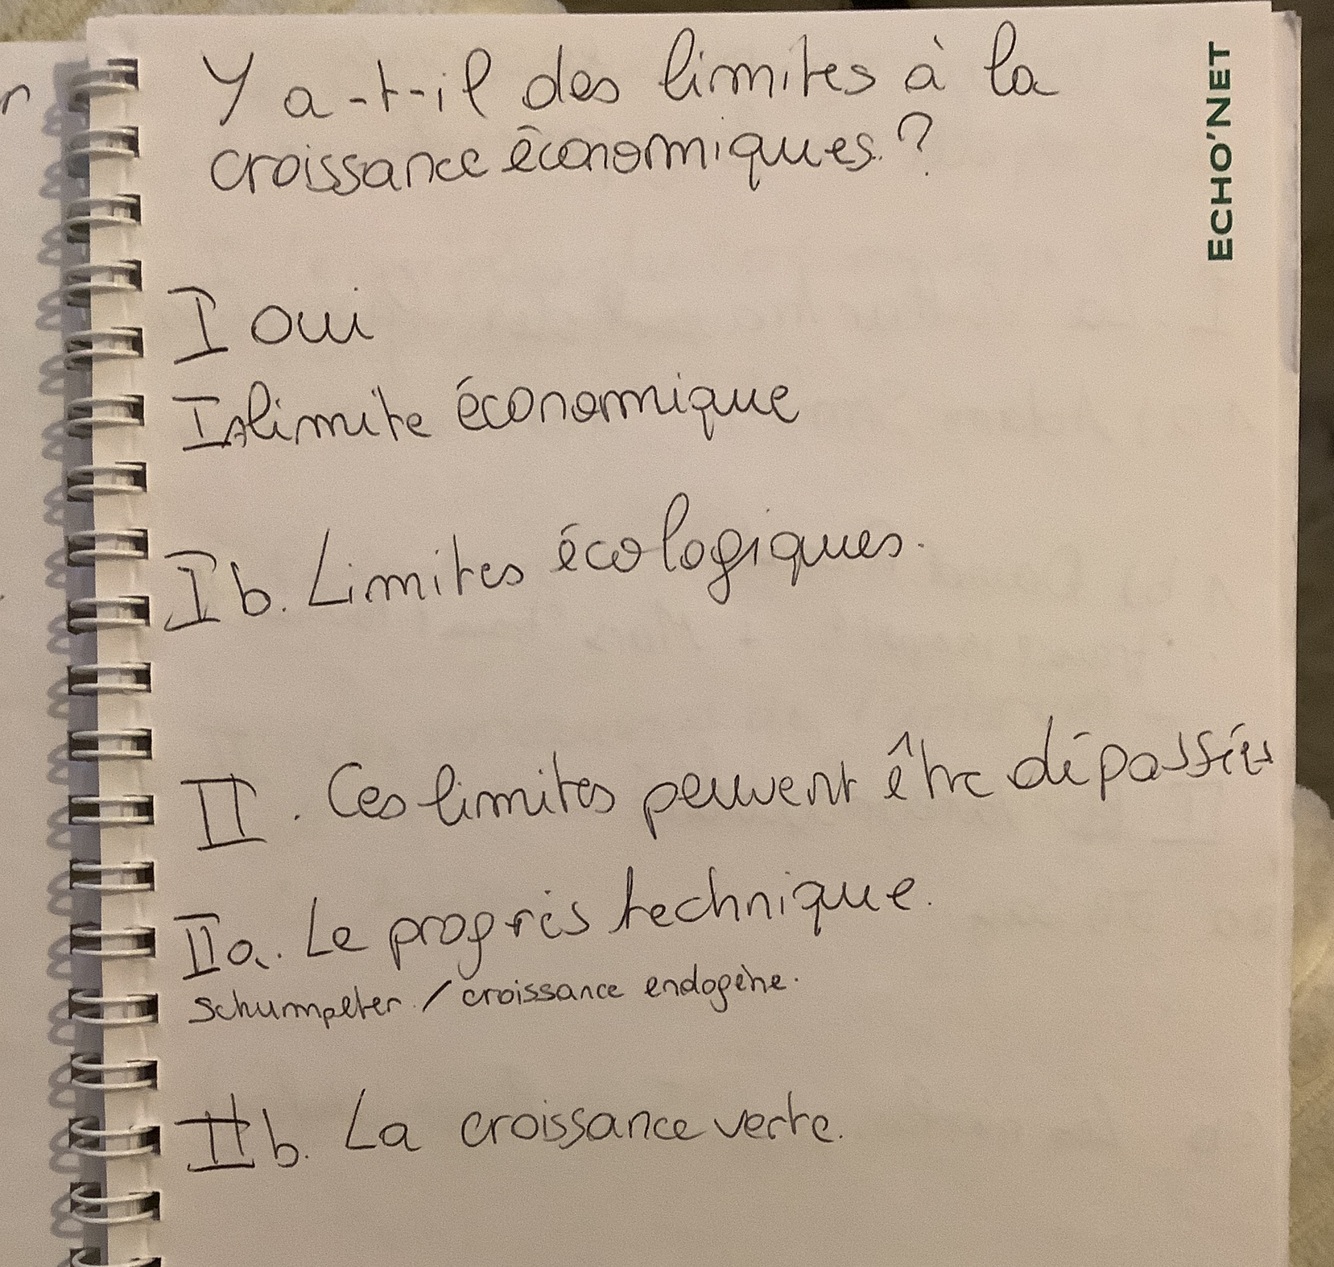 Y a-t-il des limites à la
croissance économiques ?
ECHO'NET
I oui
Ia limite économique
I b. Limites écologiques.
II. Ces limites peuvent être dépassées
IIa. Le progrès technique.
Schumpeter / croissance endogène.
II b. La croissance verte.